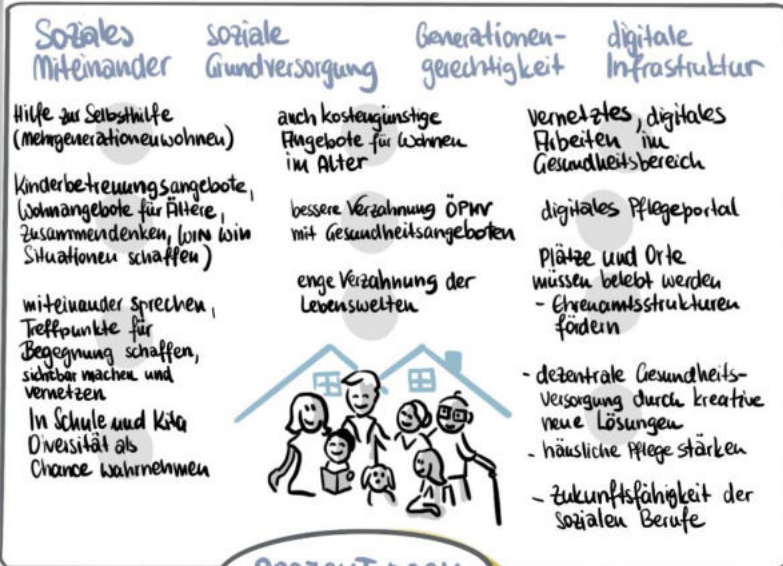 Soziales
Miteinander
soziale
Grundversorgung
Generationen-
gerechtigkeit
digitale
Infrastruktur
Hilfe zur Selbsthilfe
(Mehrgenerationenwohnen)
Kinderbetreuungsangebote,
Wohnangebote für Ältere,
zusammendenken, (WIN WIN
Situationen schaffen)
miteinander sprechen,
Treffpunkte für
Begegnung schaffen,
sichtbar machen und
vernetzen
In Schule und Kita
Diversität als
Chance wahrnehmen
auch kostengünstige
Angebote für Wohnen
im Alter
bessere Verzahnung ÖPNV
mit Gesundheitsangeboten
enge Verzahnung der
Lebenswelten
vernetztes, digitales
Arbeiten im
Gesundheitsbereich
digitales Pflegeportal
Plätze und Orte
müssen belebt werden
- Ehrenamtsstrukturen
fördern
- dezentrale Gesundheits-
versorgung durch kreative
neue Lösungen
- häusliche Pflege stärken
- Zukunftsfähigkeit der
sozialen Berufe